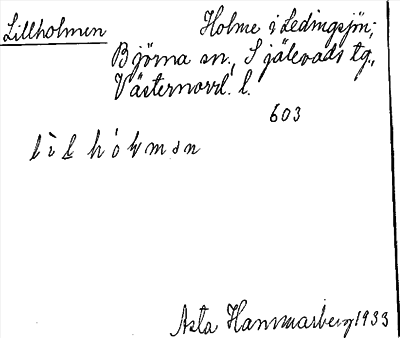 Lillholmen Holme i Ledingsjön;
Björna sn., Själevads tg.,
Västernorrl. l.
603
Asta Hammarberg 1933